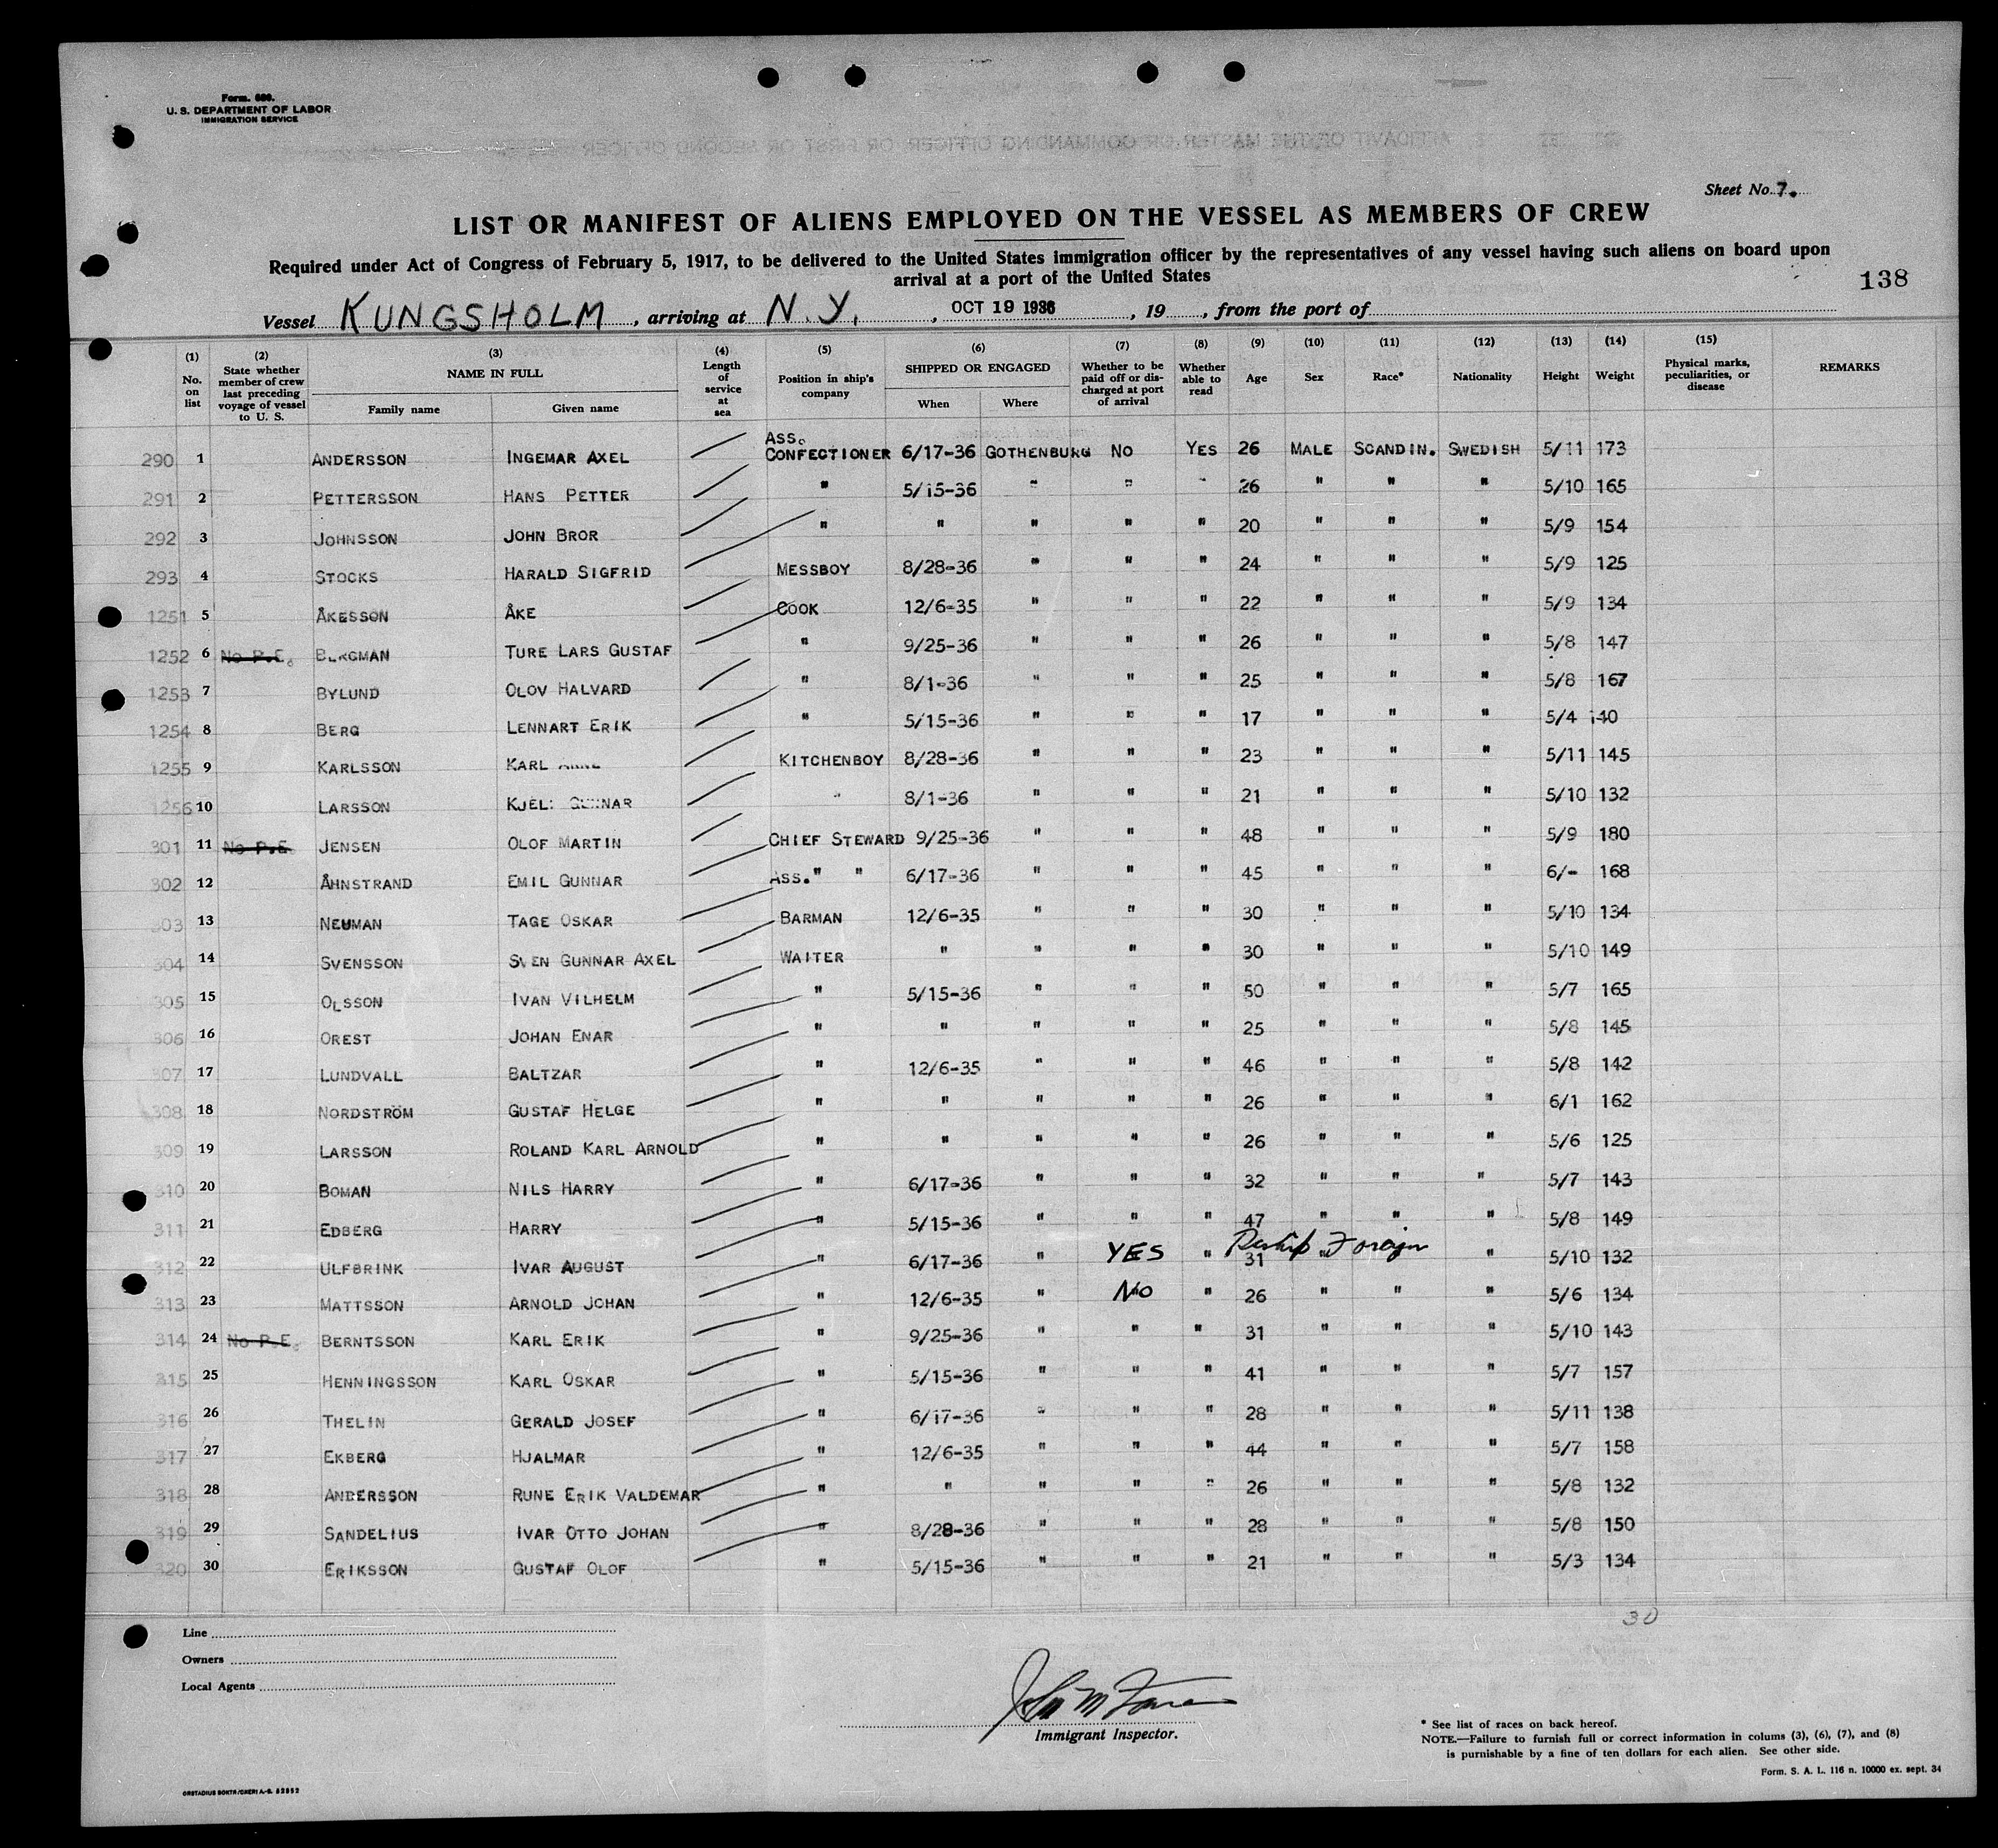 Form. 689.
U. S. DEPARTMENT OF LABOR
IMMIGRATION SERVICE
Sheet No. 7.
LIST OR MANIFEST OF ALIENS EMPLOYED ON THE VESSEL AS MEMBERS OF CREW
Required under Act of Congress of February 5, 1917, to be delivered to the United States immigration officer by the representatives of any vessel having such aliens on board upon
arrival at a port of the United States
138
Vessel KUNGSHOLM, arriving at N. Y., OCT 19 1936, 19, from the port of
(1) No. on list (2) State whether member of crew last preceding voyage of vessel to U. S. (3) NAME IN FULL Family name Given name (4) Length of service at sea (5) Position in ship's company (6) SHIPPED OR ENGAGED When Where (7) Whether to be paid off or discharged at port of arrival (8) Whether able to read (9) Age (10) Sex (11) Race* (12) Nationality (13) Height (14) Weight (15) Physical marks, peculiarities, or disease REMARKS
290 1 ANDERSSON INGEMAR AXEL ASS. CONFECTIONER 6/17-36 GOTHENBURG NO YES 26 MALE SCANDIN. SWEDISH 5/11 173
291 2 PETTERSSON HANS PETTER " 5/15-36 " " " 26 " " " 5/10 165
292 3 JOHNSSON JOHN BROR " " " " " 20 " " " 5/9 154
293 4 STOCKS HARALD SIGFRID MESSBOY 8/28-36 " " " 24 " " " 5/9 125
1251 5 ÅKESSON ÅKE COOK 12/6-35 " " " 22 " " " 5/9 134
1252 6 No P.E. BERGMAN TURE LARS GUSTAF " 9/25-36 " " " 26 " " " 5/8 147
1253 7 BYLUND OLOV HALVARD " 8/1-36 " " " 25 " " " 5/8 167
1254 8 BERG LENNART ERIK " 5/15-36 " " " 17 " " " 5/4 140
1255 9 KARLSSON KARL KITCHENBOY 8/28-36 " " " 23 " " " 5/11 145
1256 10 LARSSON KJELL GUNNAR " 8/1-36 " " " 21 " " " 5/10 132
301 11 No P.E. JENSEN OLOF MARTIN CHIEF STEWARD 9/25-36 " " " 48 " " " 5/9 180
302 12 ÅHNSTRAND EMIL GUNNAR ASS. " " 6/17-36 " " " 45 " " " 6/- 168
303 13 NEUMAN TAGE OSKAR BARMAN 12/6-35 " " " 30 " " " 5/10 134
304 14 SVENSSON SVEN GUNNAR AXEL WAITER " " " " 30 " " " 5/10 149
305 15 OLSSON IVAN VILHELM " 5/15-36 " " " 50 " " " 5/7 165
306 16 OREST JOHAN ENAR " " " " " 25 " " " 5/8 145
307 17 LUNDVALL BALTZAR " 12/6-35 " " " 46 " " " 5/8 142
308 18 NORDSTRÖM GUSTAF HELGE " " " " " 26 " " " 6/1 162
309 19 LARSSON ROLAND KARL ARNOLD " " " " " 26 " " " 5/6 125
310 20 BOMAN NILS HARRY " 6/17-36 " " " 32 " " " 5/7 143
311 21 EDBERG HARRY " 5/15-36 " " " 47 " " " 5/8 149
312 22 ULFBRINK IVAR AUGUST " 6/17-36 " YES " 31 Reship Foreign " " 5/10 132
313 23 MATTSSON ARNOLD JOHAN " 12/6-35 " No " 26 " " " 5/6 134
314 24 No P.E. BERNTSSON KARL ERIK " 9/25-36 " " " 31 " " " 5/10 143
315 25 HENNINGSSON KARL OSKAR " 5/15-36 " " " 41 " " " 5/7 157
316 26 THELIN GERALD JOSEF " 6/17-36 " " " 28 " " " 5/11 138
317 27 EKBERG HJALMAR " 12/6-35 " " " 44 " " " 5/7 158
318 28 ANDERSSON RUNE ERIK VALDEMAR " " " " " 26 " " " 5/8 132
319 29 SANDELIUS IVAR OTTO JOHAN " 8/28-36 " " " 28 " " " 5/8 150
320 30 ERIKSSON GUSTAF OLOF " 5/15-36 " " " 21 " " " 5/3 134
30
Line
Owners
Local Agents
Immigrant Inspector.
* See list of races on back hereof.
NOTE.—Failure to furnish full or correct information in colums (3), (6), (7), and (8)
is punishable by a fine of ten dollars for each alien. See other side.
Form. S. A. L. 116 n. 10000 ex. sept. 34